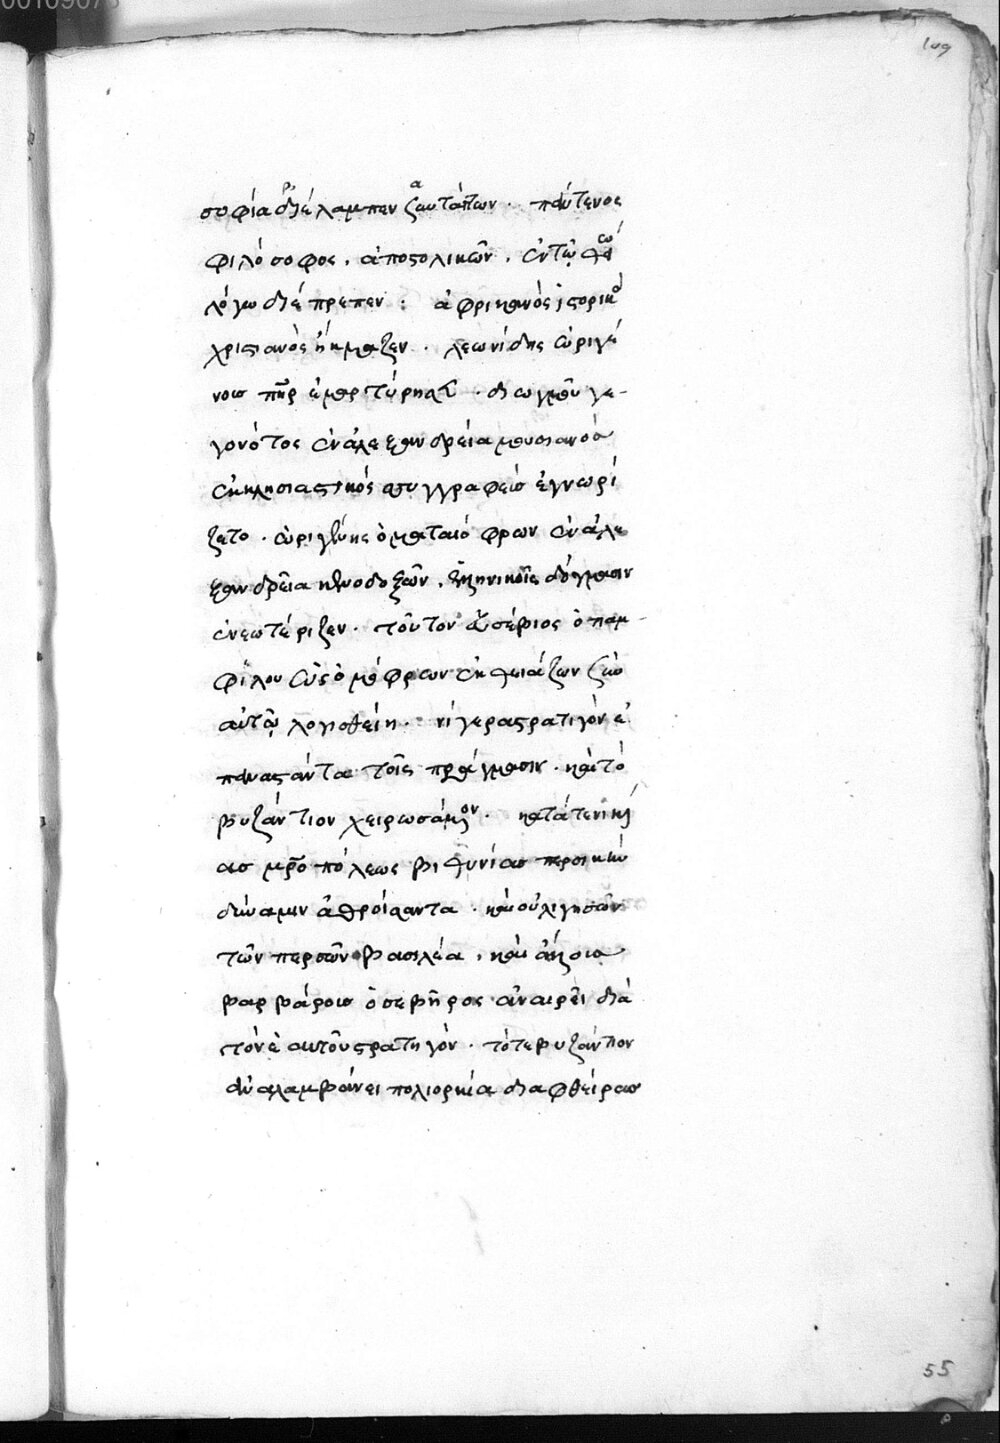 109
σοφία διέλαμπεν ταῦτα πάντων. πάντενος
φιλόσοφος, ἀποστολικῶν. ἐν τῷ θείῳ
λόγω διέπρεπεν : ἀφρικανὸς ἱστορικὸ
χριστιανὸς ἤκμαζεν. λεωνίδης ὠριγέ
νους πηρ ἐμαρτύρησε. διωγμοῦ γε-
γονότος ἐν ἀλεξανδρεία μουσιανὸσ
ἐκκλησιαστικός συγγραφεὺσ ἐγνωρί
ζετο. ὠριγένης ὁ ματαιόφρων ἐν ἀλε
ξανδρεῖα κενοδοξῶν, ἑλληνικοῖς δόγμασιν
ἐνεωτέριζεν. τοῦτον εὐσέβιος ὁ παμ-
φίλου ὡς ὁμόφρων ἐκθειάζων
αὐτῷ λογισθείη. νίγερα στρατιγὸν ἐ
παναστάντα τοῖς πράγμασιν. καὶ τὸ
βυζάντιον χειρωσάμενον. κατά τε νικαί
ασ μρο πόλεως βιθυνίασ περσικὴν
δύναμιν ἀθροίσαντα. καὶ οὐλιγησῶν
τῶν περσῶν βασιλέα, καὶ
βαρβάροισ ὁ σεβῆρος ἀναιρεῖ διὰ
τὸν ἑαυτοῦ στρατηγὸν. τότε βυζάντιον
ἀναλαμβάνει πολιορκία διαφθείρασ
55